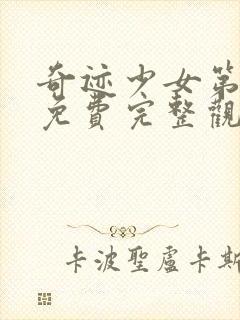 奇迹少女第
免費完整觀
卡波聖盧卡斯